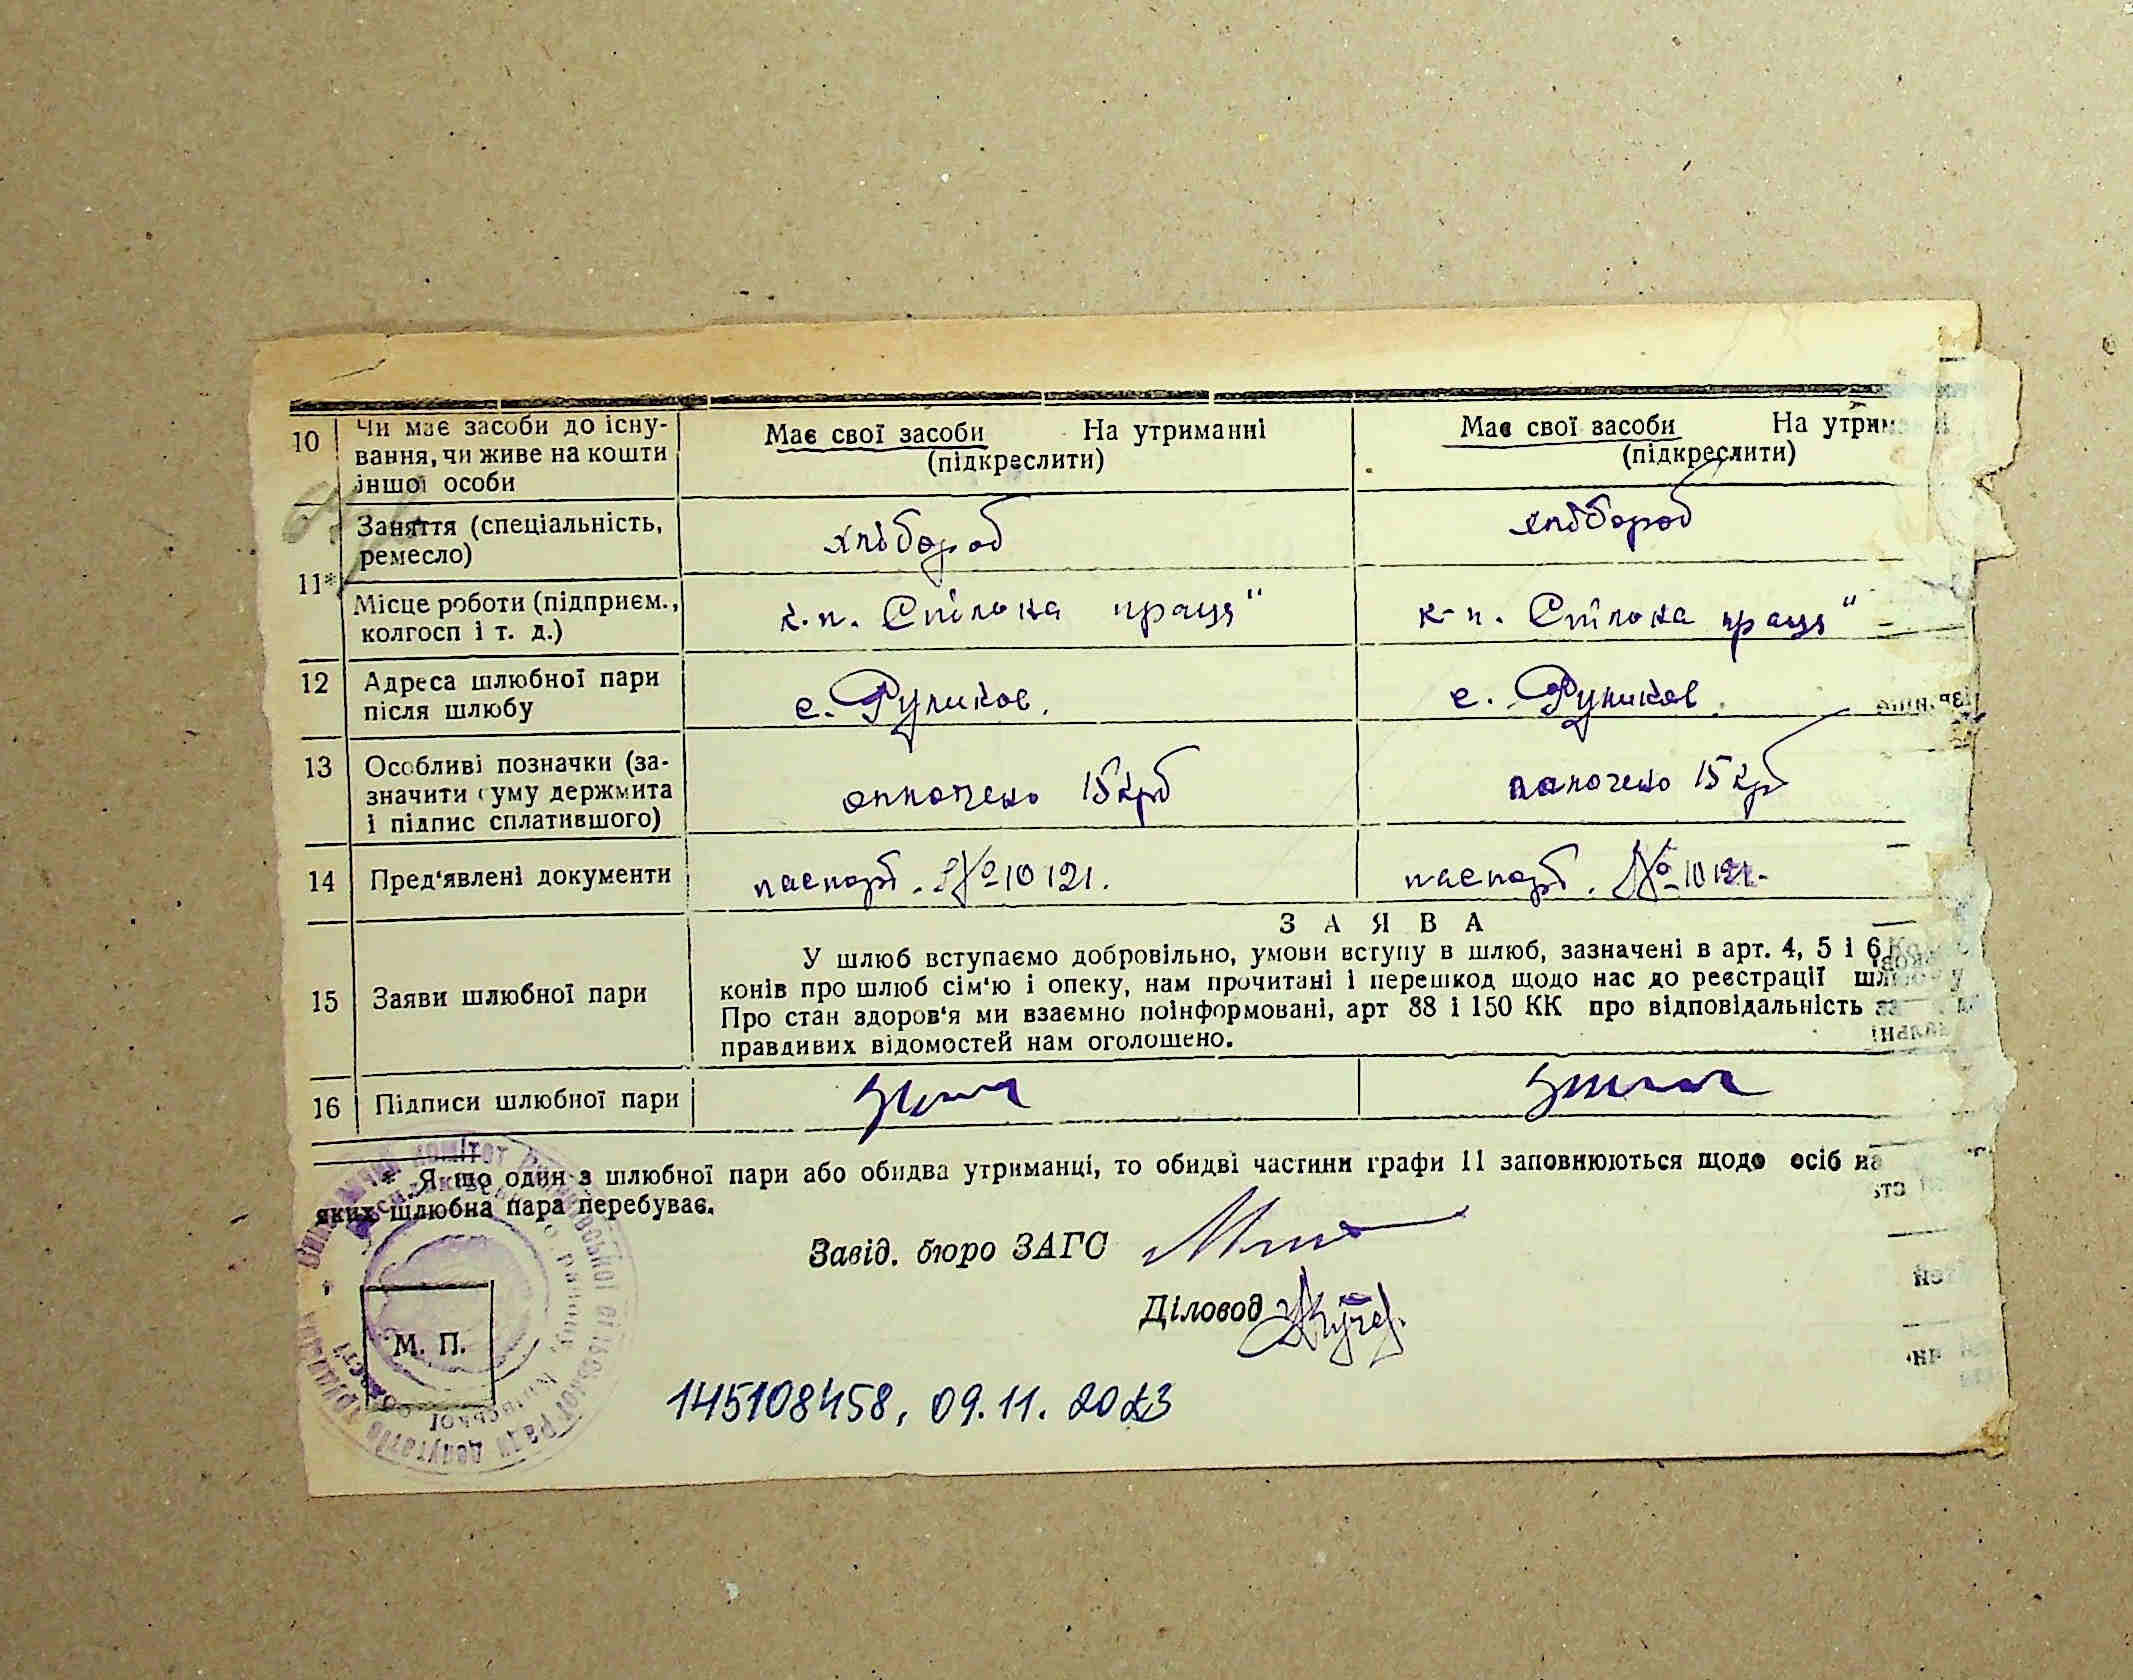 10 Чи має засоби до існу-
вання, чи живе на кошти
іншої особи
Має свої засоби На утриманні
(підкреслити)
Має свої засоби На утрим
(підкреслити)
11* Заняття (спеціальність,
ремесло)
хлібороб
хлібороб
Місце роботи (підприєм.,
колгосп і т. д.)
к-п. Спільна праця"
к-п. Спільна праця"
12 Адреса шлюбної пари
після шлюбу
с. Руликов.
с. Руликов.
13 Особливі позначки (за-
значити суму держмита
і підпис сплатившого)
оплочено 15 крб
оплочено 15 крб
14 Пред'явлені документи
паспорт. № 10121.
паспорт. № 10121.
15 Заяви шлюбної пари
ЗАЯВА
У шлюб вступаємо добровільно, умови вступу в шлюб, зазначені в арт. 4, 5 і 6
конів про шлюб сім'ю і опеку, нам прочитані і перешкод щодо нас до реєстрації шлюбу
Про стан здоров'я ми взаємно поінформовані, арт 88 і 150 КК про відповідальність за
правдивих відомостей нам оголошено.
16 Підписи шлюбної пари
* Якщо один з шлюбної пари або обидва утриманці, то обидві частини графи 11 заповнюються щодо осіб на
яких шлюбна пара перебуває.
Завід. бюро ЗАГС
Діловод
М. П.
145108458, 09.11.2023